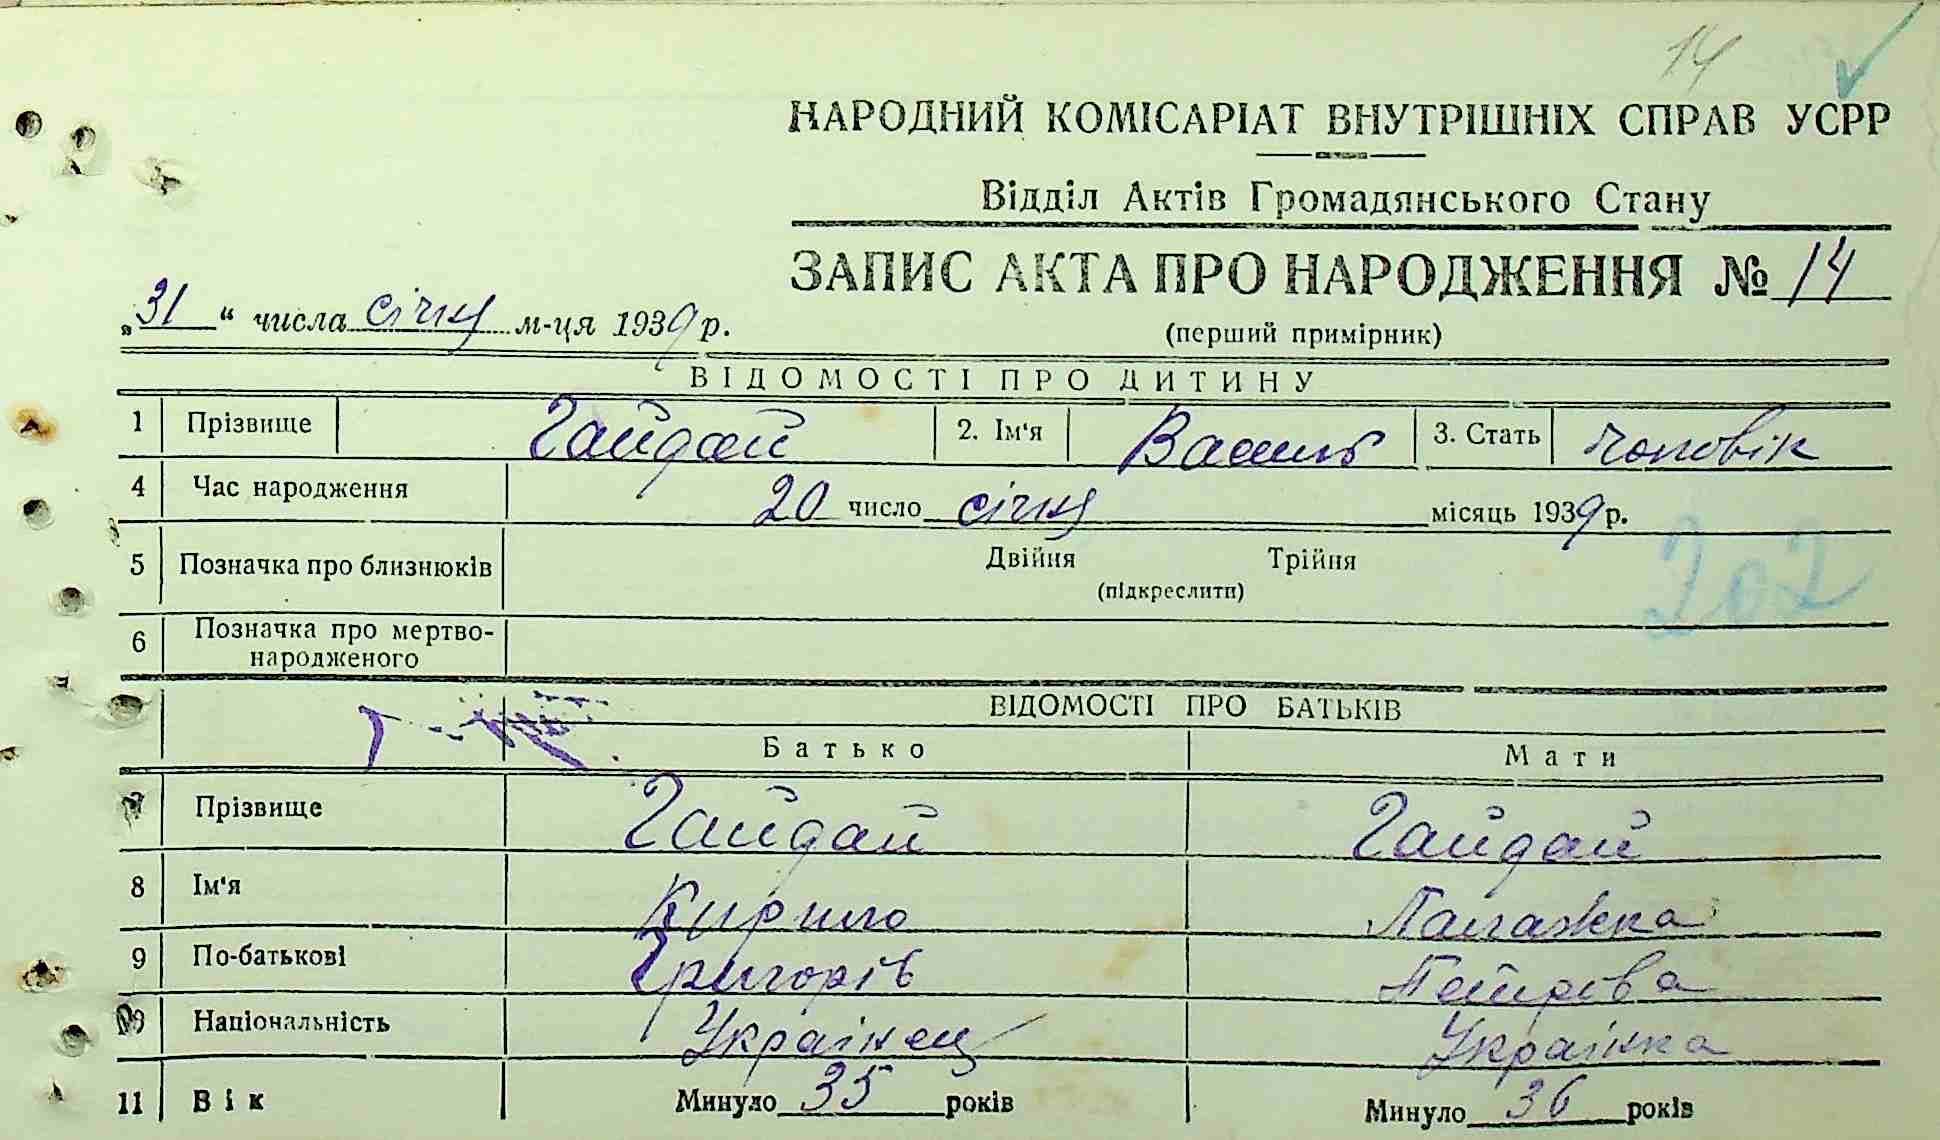 14
НАРОДНИЙ КОМІСАРІАТ ВНУТРІШНІХ СПРАВ УСРР
Відділ Актів Громадянського Стану
ЗАПИС АКТА ПРО НАРОДЖЕННЯ № 14
„31“ числа січня м-ця 1939 р.
(перший примірник)
ВІДОМОСТІ ПРО ДИТИНУ
1 Прізвище Гайдай 2. Ім'я Василь 3. Стать чоловік
4 Час народження 20 число січня місяць 1939 р.
5 Позначка про близнюків Двійня Трійня
(підкреслити)
202
6 Позначка про мертво-
народженого
ВІДОМОСТІ ПРО БАТЬКІВ
Батько Мати
7 Прізвище Гайдай Гайдай
8 Ім'я Кирило Палажка
9 По-батькові Григорів Петрова
10 Національність Українец Українка
11 Вік Минуло 35 років Минуло 36 років